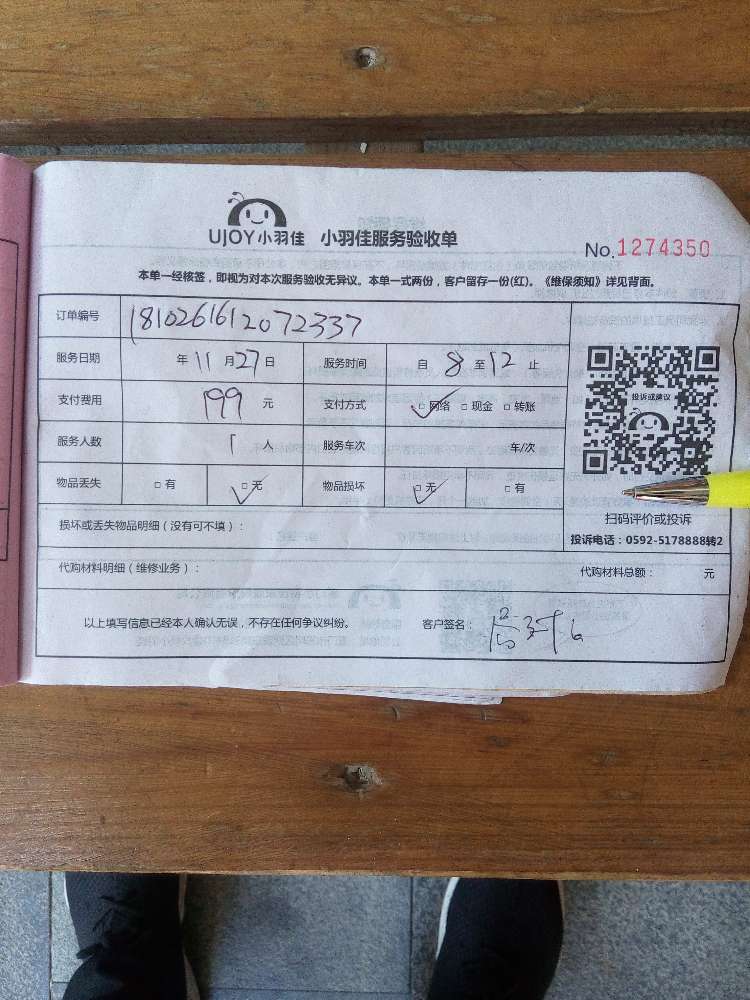 UJOY小羽佳 小羽佳服务验收单
No.1274350
本单一经核签，即视为对本次服务验收无异议。本单一式两份，客户留存一份(红)。《维保须知》详见背面。
订单编号 1810261612072337
服务日期 年 11 月 27 日 服务时间 自 8 至 12 止
支付费用 199 元 支付方式 □网络 □现金 □转账
服务人数 1 人 服务车次 车/次
物品丢失 □有 □无 物品损坏 □无 □有
投诉或建议
扫码评价或投诉
投诉电话：0592-5178888转2
损坏或丢失物品明细（没有可不填）：
代购材料明细（维修业务）： 代购材料总额： 元
以上填写信息已经本人确认无误，不存在任何争议纠纷。 客户签名：